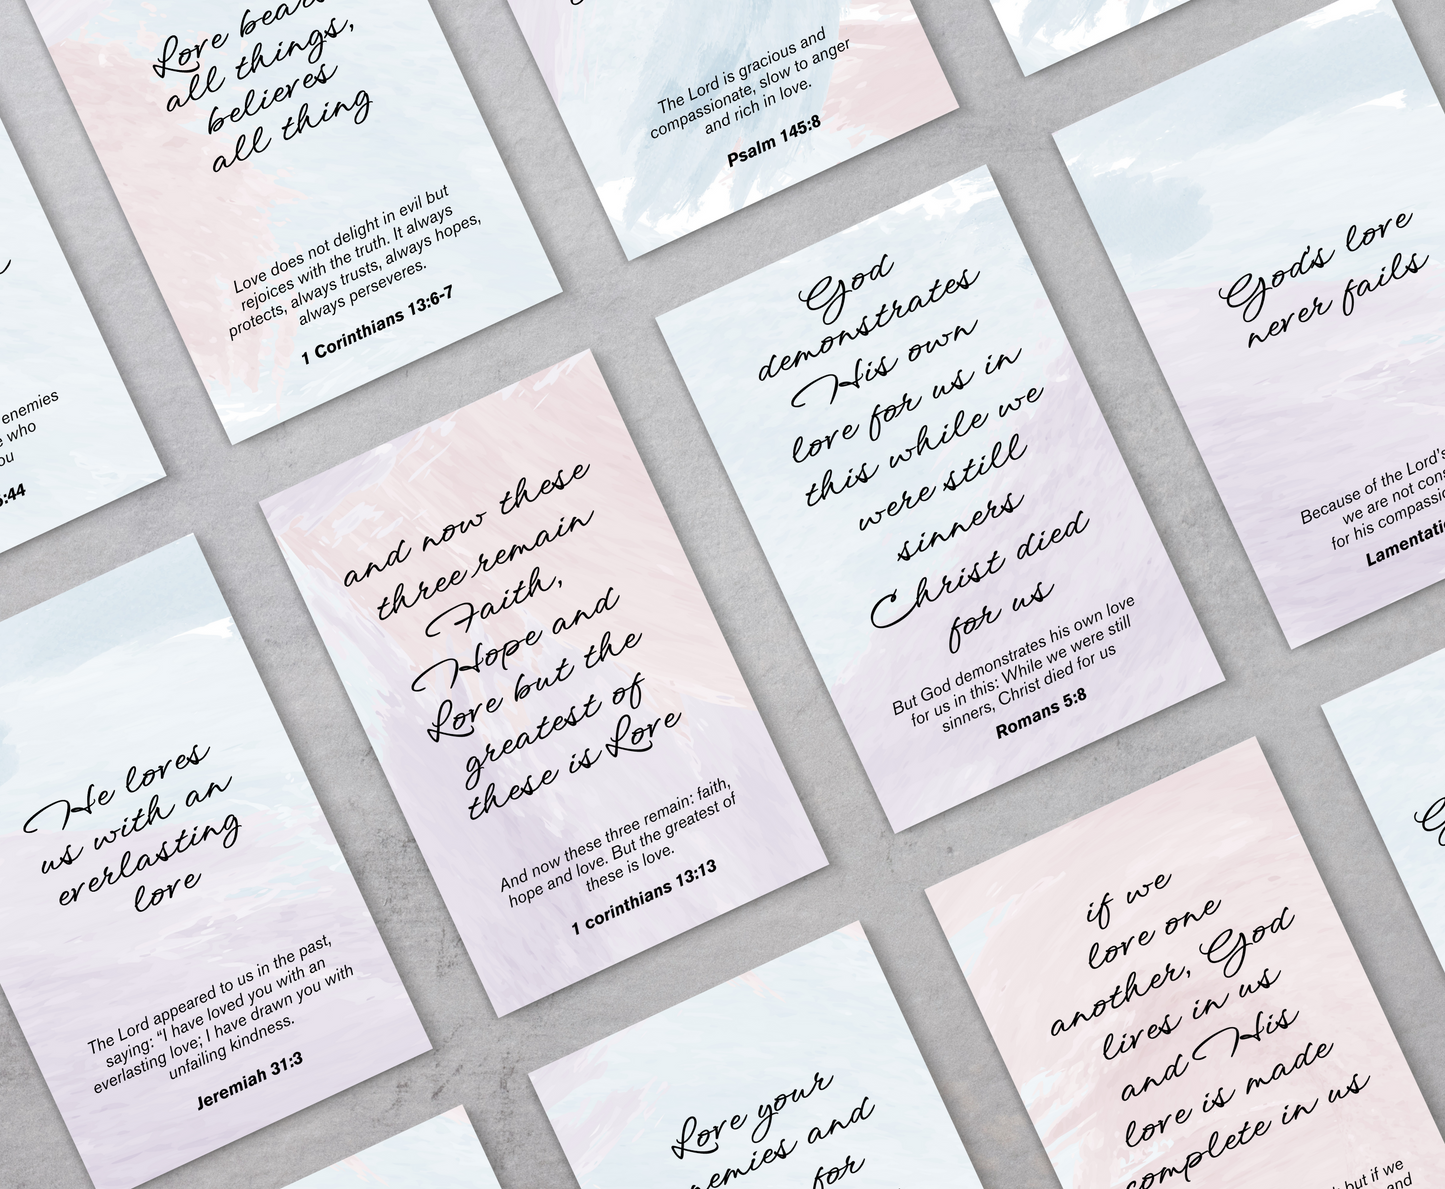 Love bears
all things,
believes
all thing
Love does not delight in evil but
rejoices with the truth. It always
protects, always trusts, always hopes,
always perseveres.
1 Corinthians 13:6-7
The Lord is gracious and
compassionate, slow to anger
and rich in love.
Psalm 145:8
God's love
never fails
Because of the Lord's
we are not
for his
God
demonstrates
His own
love for us in
this while we
were still
sinners
Christ died
for us
But God demonstrates his own love
for us in this: While we were still
sinners, Christ died for us
Romans 5:8
enemies
who
:44
and now these
three remain
Faith,
Hope and
Love but the
greatest of
these is Love
And now these three remain: faith,
hope and love. But the greatest of
these is love.
1 corinthians 13:13
He loves
us with an
everlasting
love
The Lord appeared to us in the past,
saying: “I have loved you with an
everlasting love; I have drawn you with
unfailing kindness.
Jeremiah 31:3
if we
love one
another, God
lives in us
and His
love is made
complete in us
but if we
and
Love your
and
for